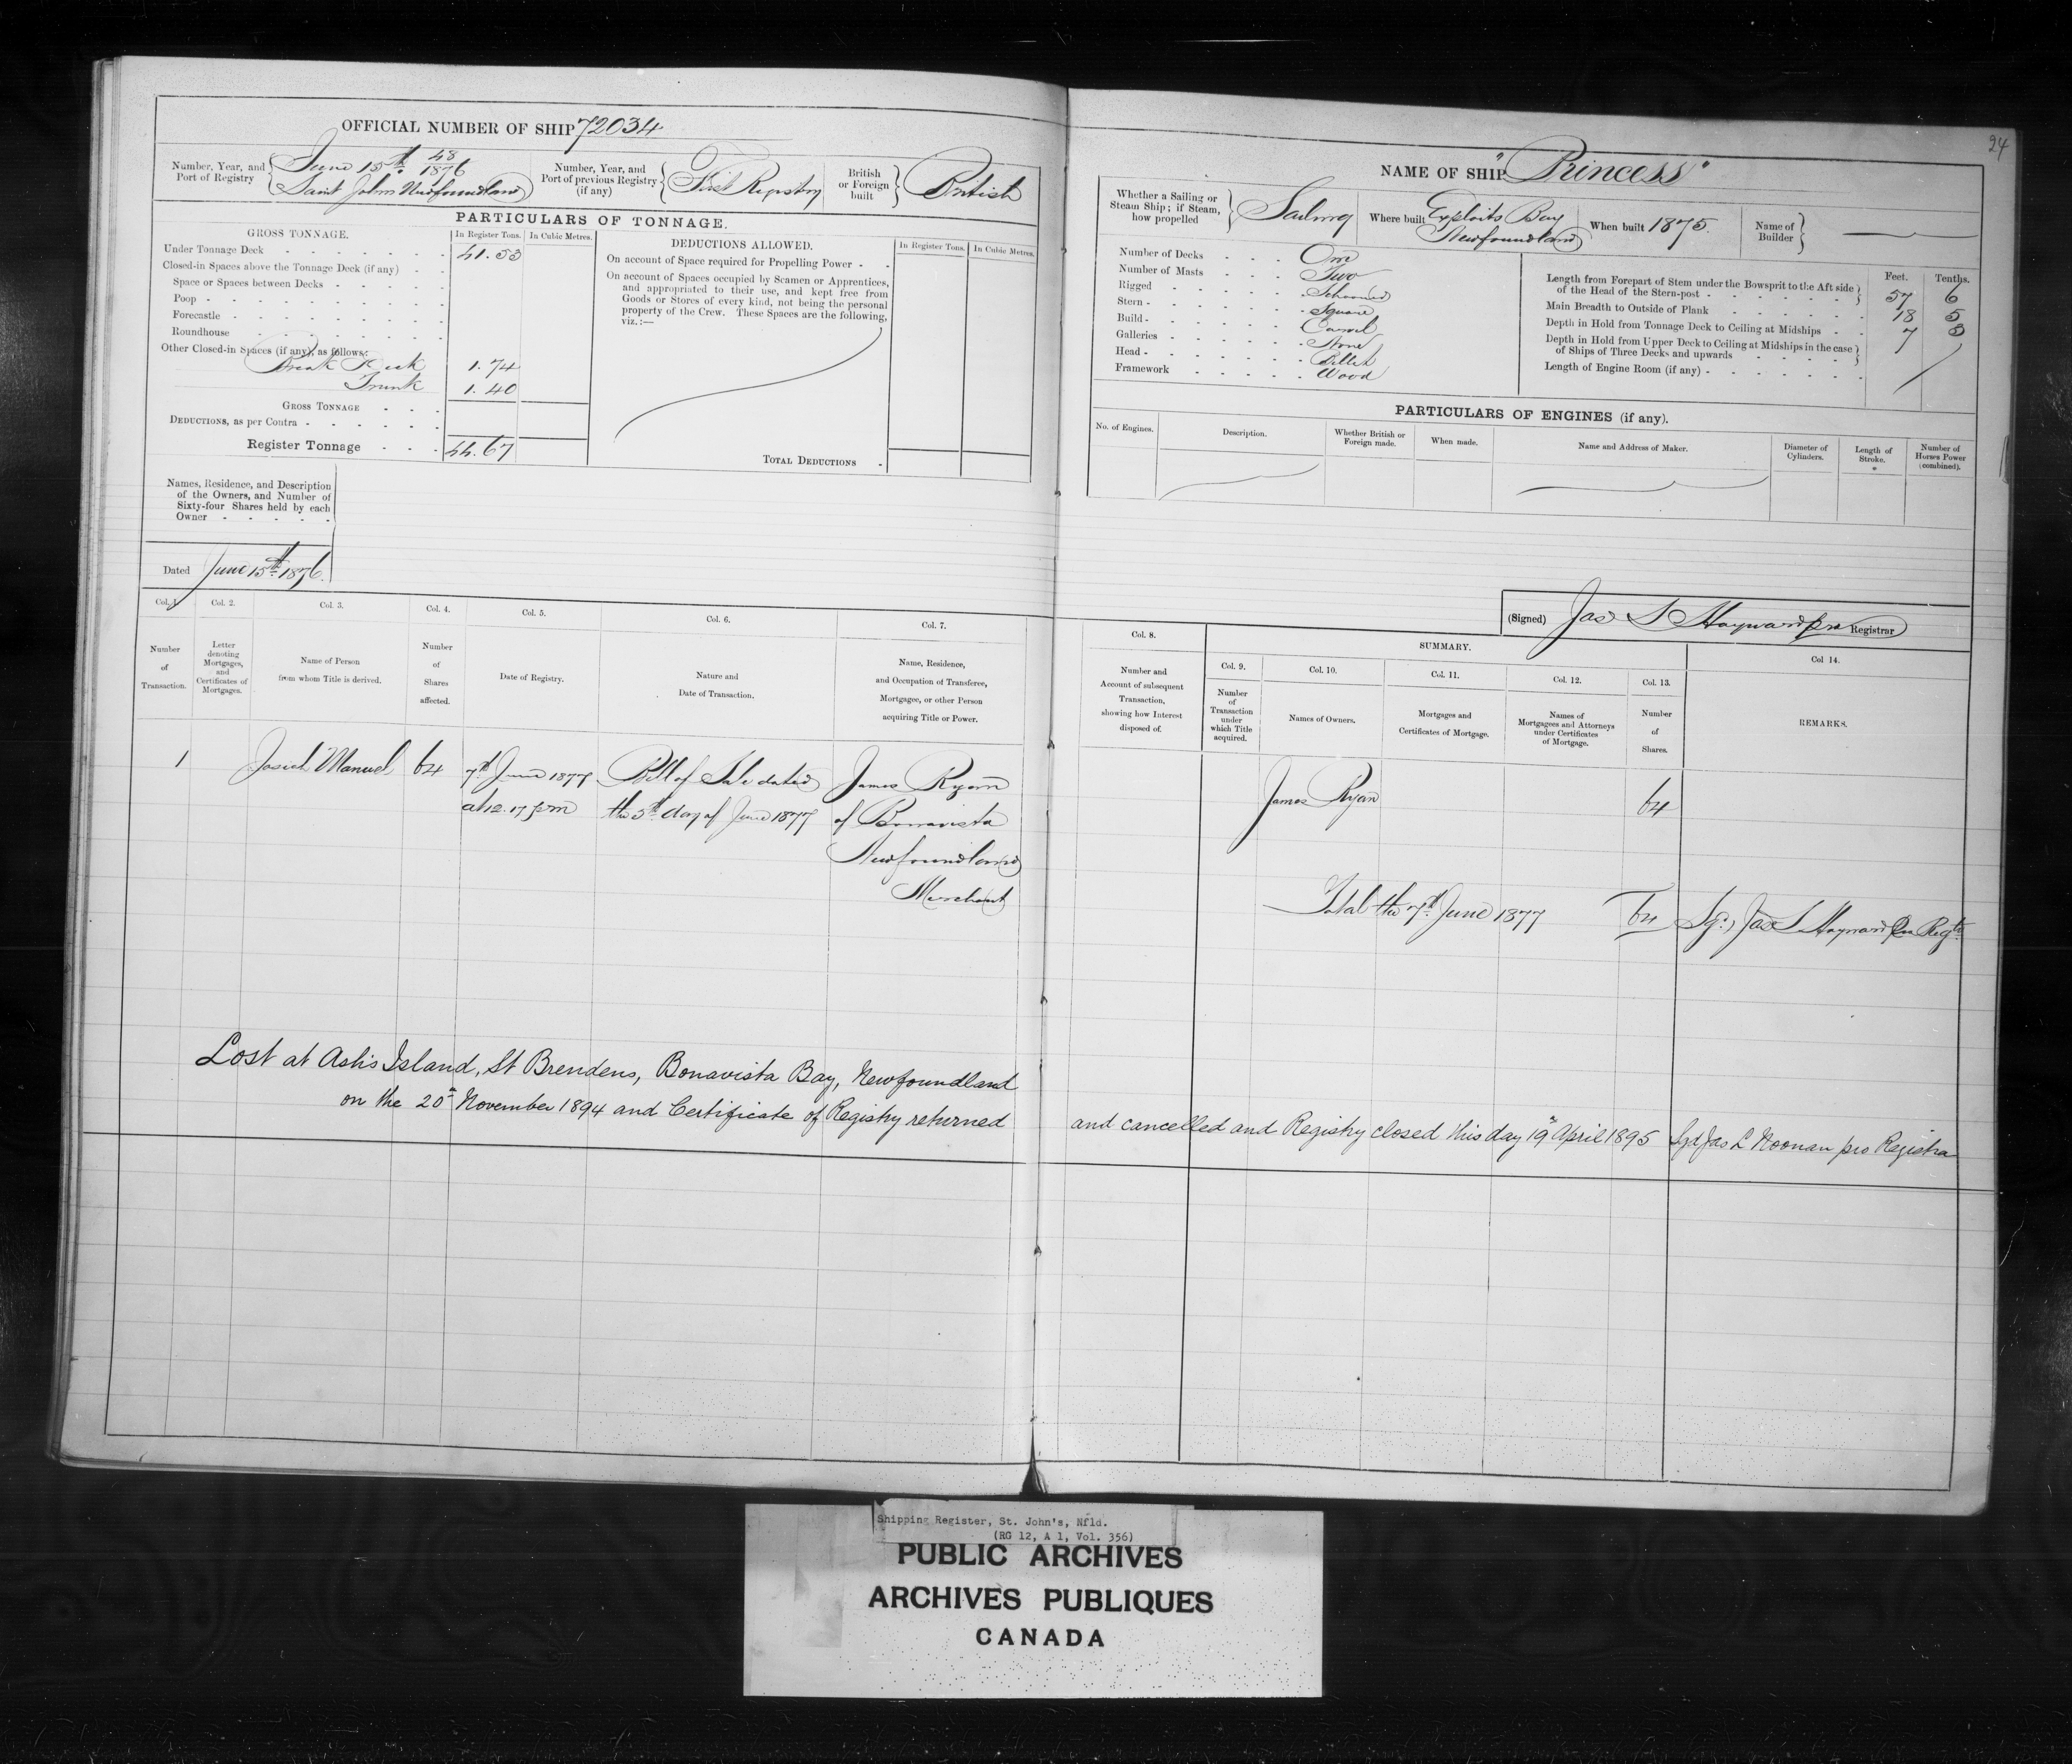 24
OFFICIAL NUMBER OF SHIP 72034
Number, Year, and Port of Registry { June 15th 48/1876 Saint Johns Newfoundland
Number, Year, and Port of previous Registry (if any) { First Registry
British or Foreign built } British
PARTICULARS OF TONNAGE.
GROSS TONNAGE. In Register Tons. In Cubic Metres.
Under Tonnage Deck 41.53
Closed-in Spaces above the Tonnage Deck (if any)
Space or Spaces between Decks
Poop
Forecastle
Roundhouse
Other Closed-in Spaces (if any), as follows:
Break Deck 1.74
Trunk 1.40
GROSS TONNAGE
DEDUCTIONS, as per Contra
Register Tonnage 44.67
DEDUCTIONS ALLOWED. In Register Tons. In Cubic Metres.
On account of Space required for Propelling Power
On account of Spaces occupied by Seamen or Apprentices,
and appropriated to their use, and kept free from
Goods or Stores of every kind, not being the personal
property of the Crew. These Spaces are the following,
viz.:—
TOTAL DEDUCTIONS
Names, Residence, and Description
of the Owners, and Number of
Sixty-four Shares held by each
Owner
Dated June 15th 1876.
NAME OF SHIP "Princess"
Whether a Sailing or Steam Ship; if Steam, how propelled } Sailing
Where built Exploits Bay Newfoundland
When built 1875.
Name of Builder }
Number of Decks One
Number of Masts Two
Rigged Schooner
Stern Square
Build Carvel
Galleries None
Head Billet
Framework Wood
Feet. Tenths.
Length from Forepart of Stem under the Bowsprit to the Aft side of the Head of the Stern-post 57 6
Main Breadth to Outside of Plank 18 5
Depth in Hold from Tonnage Deck to Ceiling at Midships 7 3
Depth in Hold from Upper Deck to Ceiling at Midships in the case of Ships of Three Decks and upwards
Length of Engine Room (if any)
PARTICULARS OF ENGINES (if any).
No. of Engines. Description. Whether British or Foreign made. When made. Name and Address of Maker. Diameter of Cylinders. Length of Stroke. Number of Horses Power (combined).
(Signed) Jas S Hayward pro Registrar
Col. 1 Col. 2. Col. 3. Col. 4. Col. 5. Col. 6. Col. 7.
Number of Transaction.
Letter denoting Mortgages, and Certificates of Mortgages.
Name of Person from whom Title is derived.
Number of Shares affected.
Date of Registry.
Nature and Date of Transaction.
Name, Residence, and Occupation of Transferee, Mortgagee, or other Person acquiring Title or Power.
Col. 8. SUMMARY.
Col. 9. Col. 10. Col. 11. Col. 12. Col. 13. Col 14.
Number and Account of subsequent Transaction, showing how Interest disposed of.
Number of Transaction under which Title acquired.
Names of Owners.
Mortgages and Certificates of Mortgage.
Names of Mortgagees and Attorneys under Certificates of Mortgage.
Number of Shares.
REMARKS.
1 Josiah Manuel 64 7th June 1877 Bill of Sale dated James Ryan
at 12.17 pm the 5th day of June 1877 of Bonavista
Newfoundland
Merchant
James Ryan 64
Total the 7th June 1877 64 Sgd, Jas S Hayward pro Regtr
Lost at Ash's Island, St Brendens, Bonavista Bay, Newfoundland
on the 20th November 1894 and Certificate of Registry returned and cancelled and Registry closed this day 19th April 1895 Sgd Jas L Noonan pro Registra
Shipping Register, St. John's, Nfld.
(RG 12, A 1, Vol. 356)
PUBLIC ARCHIVES
ARCHIVES PUBLIQUES
CANADA